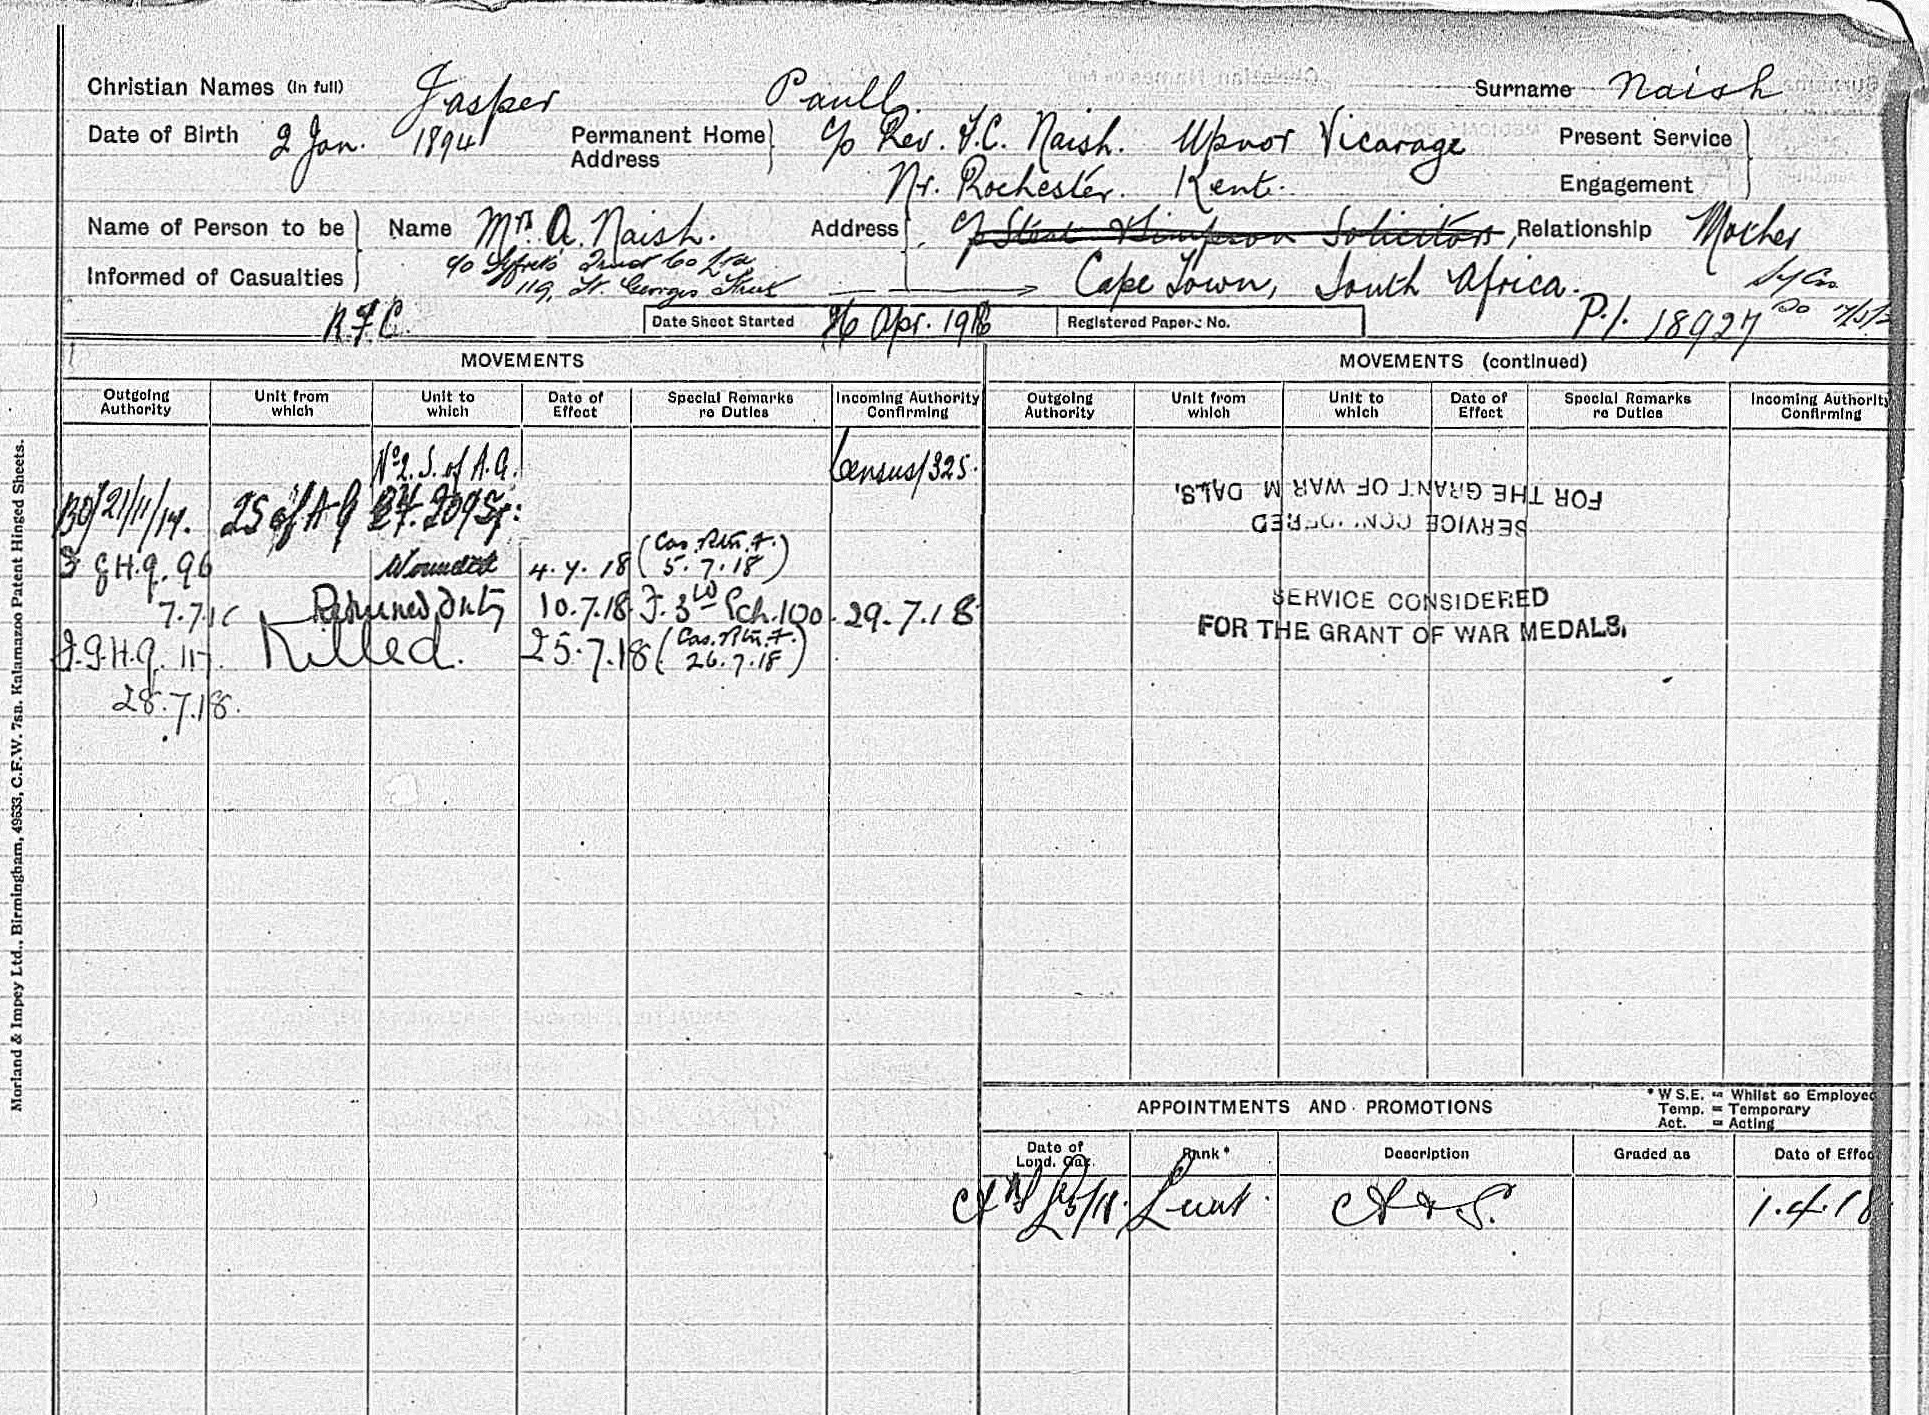 Christian Names (in full) Jasper Paull Surname Naish
Date of Birth 2 Jan. 1894 Permanent Home Address c/o Rev. F.C. Naish. Upnor Vicarage Present Service
Nr. Rochester. Kent. Engagement
Name of Person to be Name Mrs. A. Naish. Address c/o Solicitors, Relationship Mother
Informed of Casualties c/o Trust Co Ltd
119, St. Georges Street Cape Town, South Africa.
R.F.C. Date Sheet Started 26 Apr. 1918 Registered Papers No. P./. 18927
MOVEMENTS
Outgoing Authority Unit from which Unit to which Date of Effect Special Remarks re Duties Incoming Authority Confirming
No 2. S. of A.G. Census/325.
BO/21/11/17. 2S of A G 209 Sq:
F G.H.q. 96 Wounded 4.7.18 (Cas. Rtn. f. 5.7.18)
7.7.18 Returned Duty 10.7.18 F. 3 Sch. 100. 29.7.18
F.G.H.q. 117. Killed. 25.7.18 (Cas. Rtn. f. 26.7.18)
28.7.18.
MOVEMENTS (continued)
Outgoing Authority Unit from which Unit to which Date of Effect Special Remarks re Duties Incoming Authority Confirming
SERVICE CONSIDERED
FOR THE GRANT OF WAR MEDALS.
SERVICE CONSIDERED
FOR THE GRANT OF WAR MEDALS.
APPOINTMENTS AND PROMOTIONS
* W.S.E. = Whilst so Employed
Temp. = Temporary
Act. = Acting
Date of Lond. Gaz. Rank * Description Graded as Date of Effec
Lieut. A & S. 1.4.18
Morland & Impey Ltd., Birmingham, 49633, C.F.W. 7sn. Kalamazoo Patent Hinged Sheets.